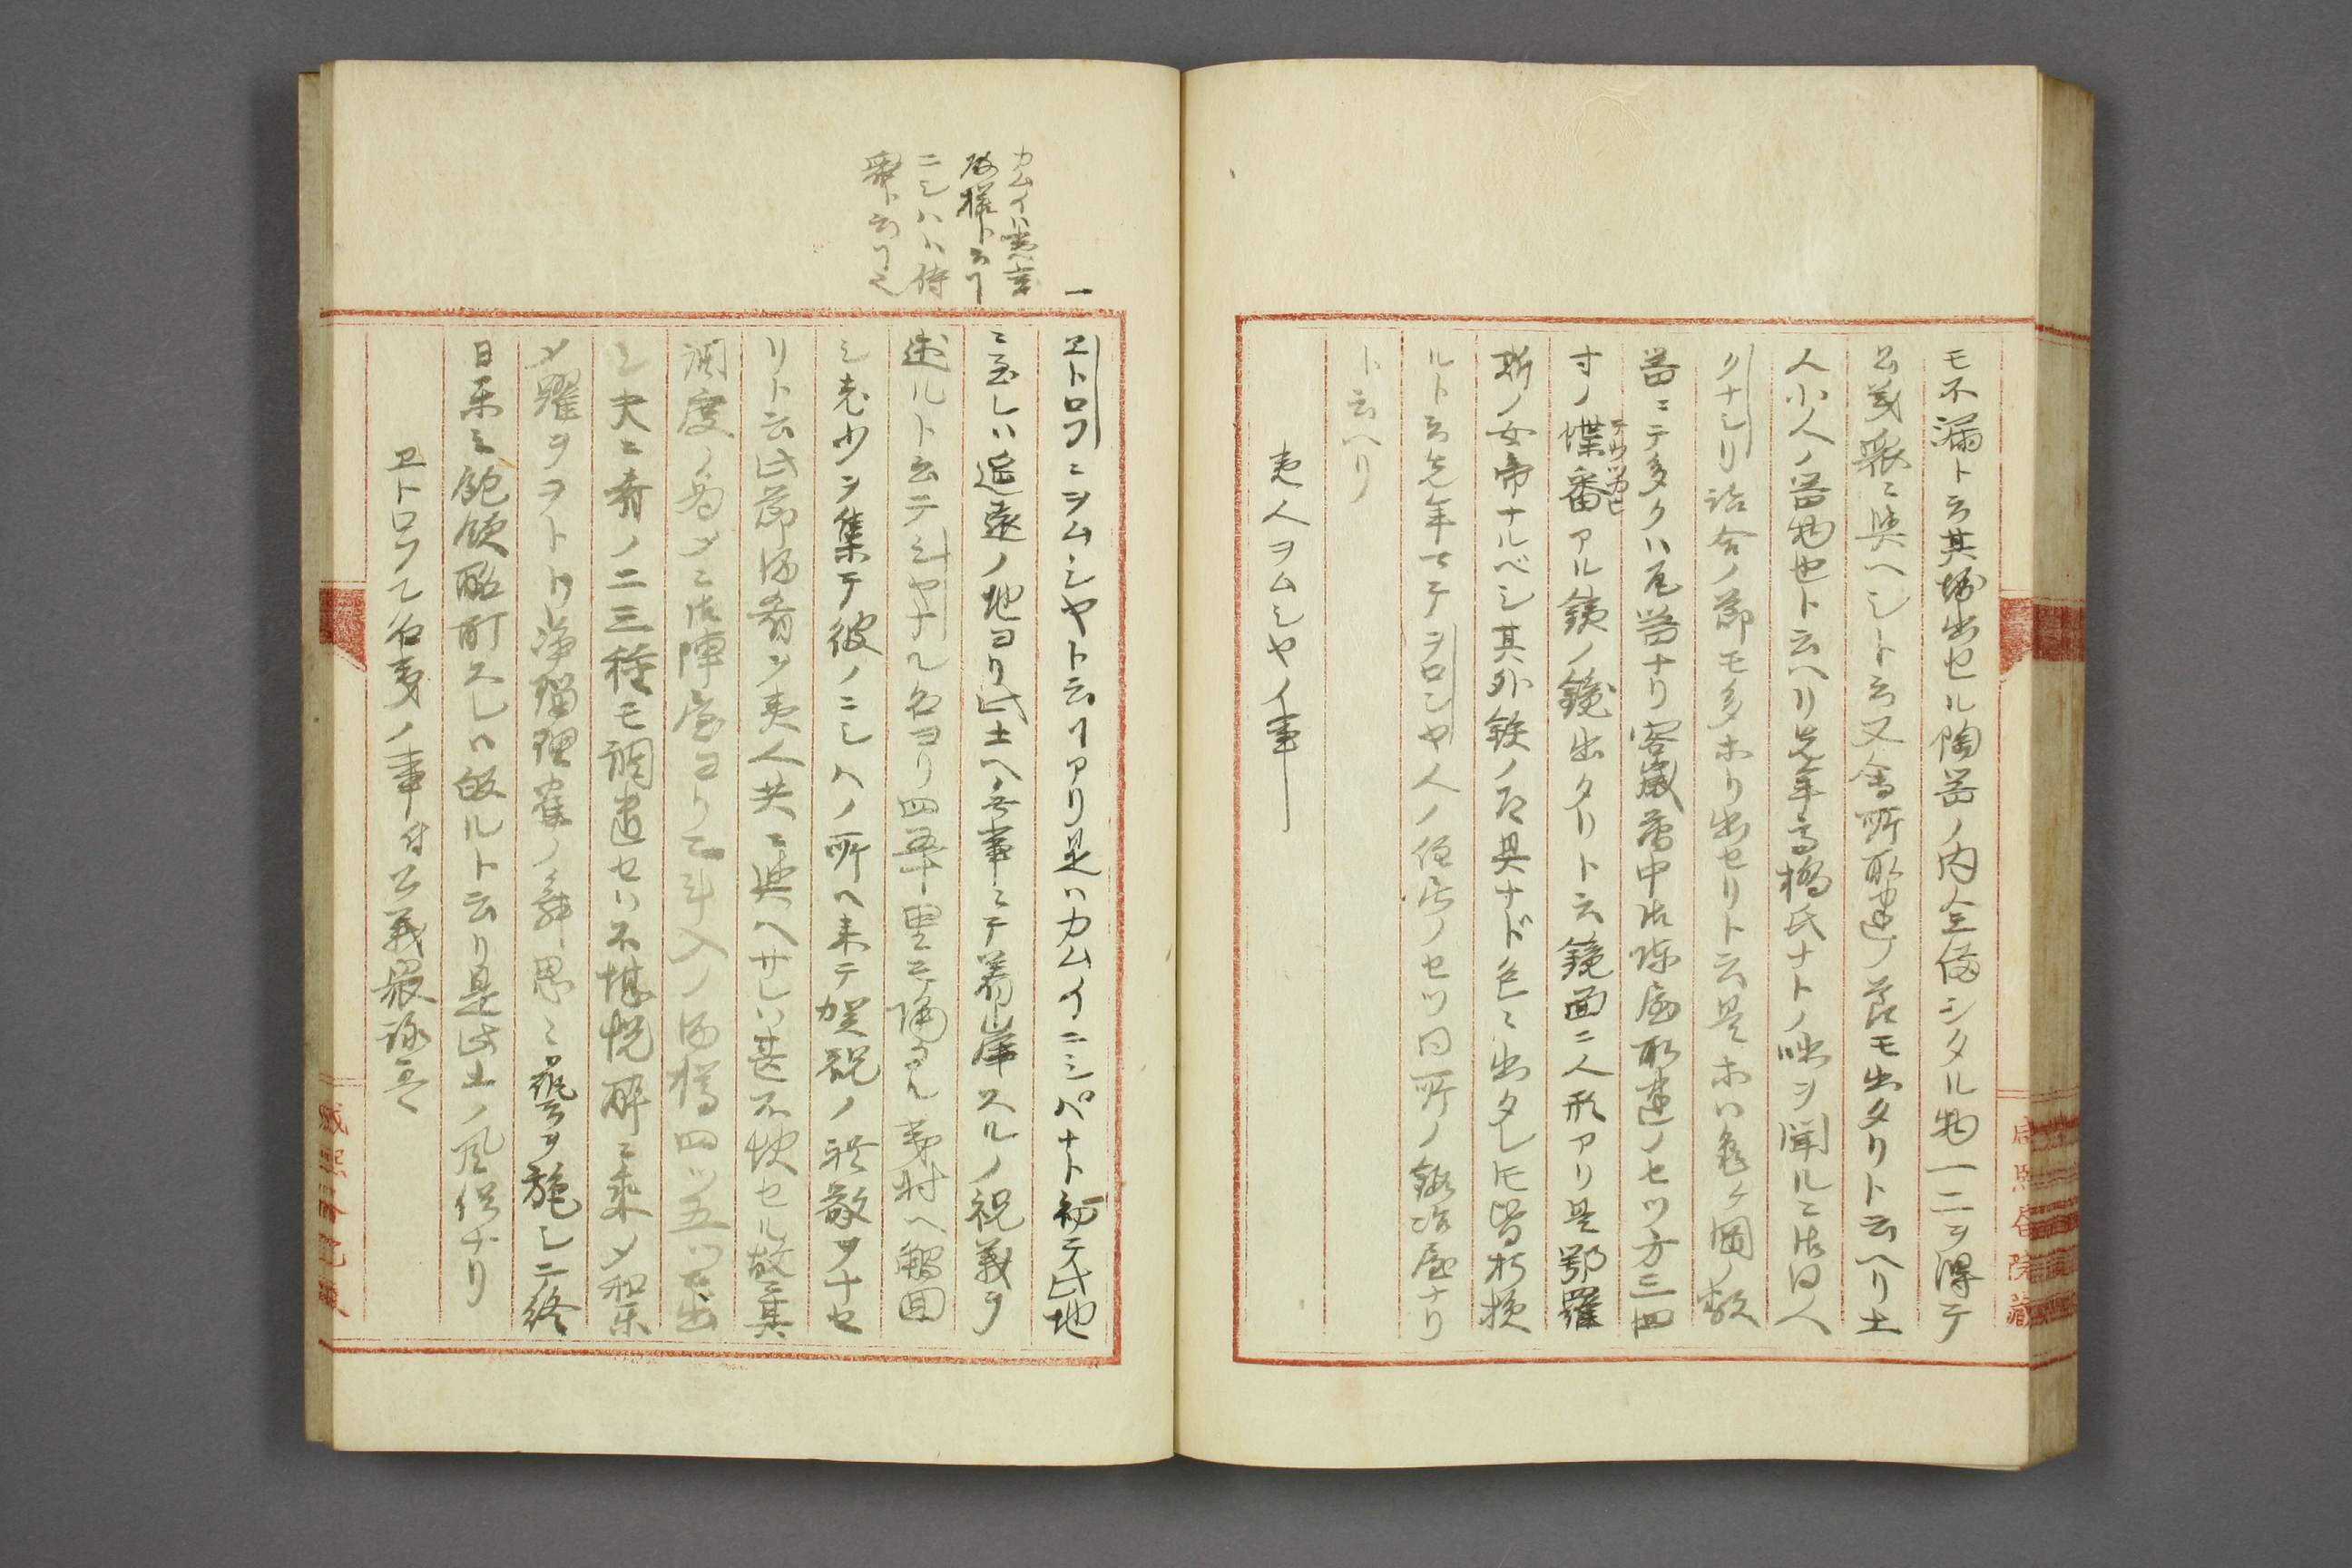 モ不漏ト云其堀出セル陶器ノ内全備シタル物一二ヲ得テ
公義衆ニ與ヘシト云又會所取建ノ節モ出タリト云ヘリ土
人小人ノ器物也ト云ヘリ先年高橋氏ナトノ咄ヲ聞ルニ此日人
クナシリ詰合ノ節モ多ホリ出セリト云是ホハ亀ケ岡ノ数
器ニテ多クハ瓦器ナリ客歳當中此陣屋取建ノセツ方三四
寸ノ喋番アル銕ノ鏡出タリト云鏡面ニ人形アリ是鄂羅
テウツガヒ
斯ノ女帝ナルベシ其外鉄ノ刃具ナド色々出タレ𪜈皆朽損
ルト云先年マテヲロシヤ人ノ住居ノセツ同所ノ鍛冶屋ナリ
ト云ヘリ
夷人ヲムシヤノ事
カムイハ夷言
殿様ト云フ
ニシハハ侍
衆ト云フ也
一
ヱトロフニヲムシヤト云フアリ是ハカムイニシパナト初テ此地
ニ至レハ遥遠ノ地ヨリ此土ヘ無事ニテ着岸スルノ祝義ヲ
述ルト云テシヤナヘ名ヨリ四五十里モ隔ル夷村ヘ觸回
シ老少ヲ集テ彼ノニシハノ所ヘ来テ賀祝ノ禮敬ヲナセ
リト云此節酒肴ヲ夷人共ニ與ヘサレハ甚不快セル故ニ其
調度ノ為メニ此陣屋ヨリモ斗入ノ酒樽四ツ五ツ差出
シ夫ニ肴ノ二三種モ調遣セハ不堪悦酔ニ乗メ和楽
メ躍ヲヲトリ浄瑠理雀ノ舞思々藝ヲ施シニ終
日楽ミ飽飲酩酊スレハ皈ルト云リ是此土ノ風俗ナリ
ヱトロフヘ名夷ノ事付公義最詠立